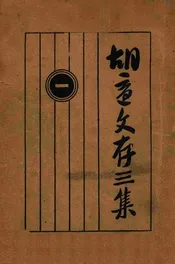 胡適文存三集
一